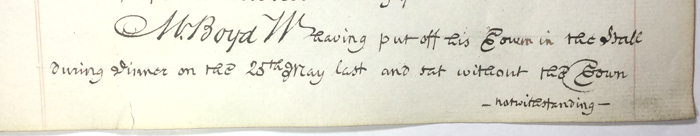 Mr. Boyd W having put off his Gown in the Hall
During Dinner on the 25th May last and sat without the Gown
– notwithstanding –